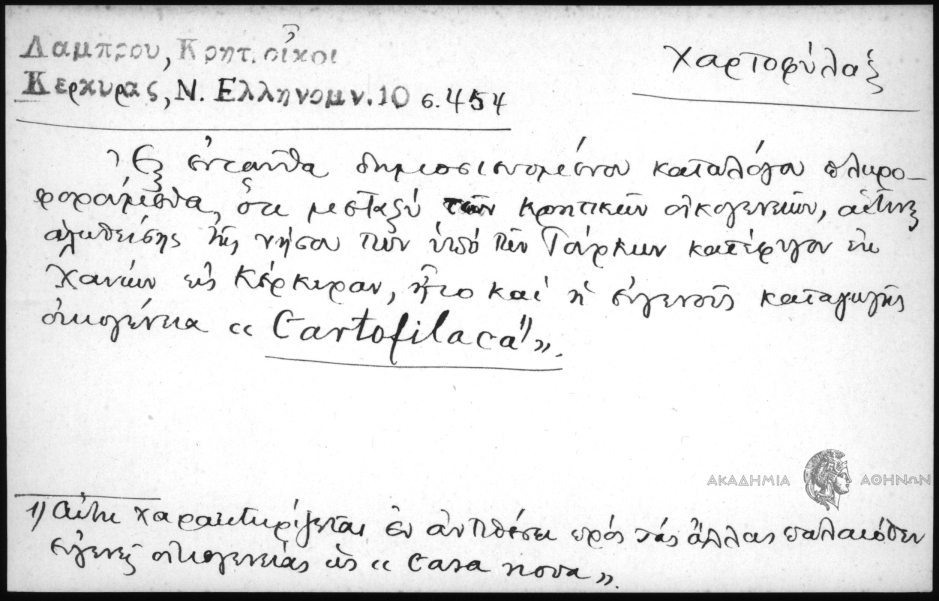 Λαμπρου, Κρητ. οἶκοι
Κερκυρας, Ν. Ελληνομν. 10 σ. 454
Χαρτοφύλαξ
Ἐξ ἐνταῦθα δημοσιευομένου καταλόγου πληρο-
φορούμεθα, ὅτι μεταξύ τῶν Κρητικῶν οἰκογενειῶν, αἵτινες
ἁλωθείσης τῆς νήσου των ὑπό τῶν Τούρκων κατέφυγον ἐκ
Χανίων εἰς Κέρκυραν, ἦτο καί ἡ εὐγενοῦς καταγωγῆς
οἰκογένεια « Cartofilaca¹⁾».
ΑΚΑΔΗΜΙΑ ΑΘΗΝΩΝ
1) Αὕτη χαρακτηρίζεται ἐν ἀντιθέσει πρός τάς ἄλλας παλαιόθεν
εὐγενεῖς οἰκογενείας ὡς « Casa nova».